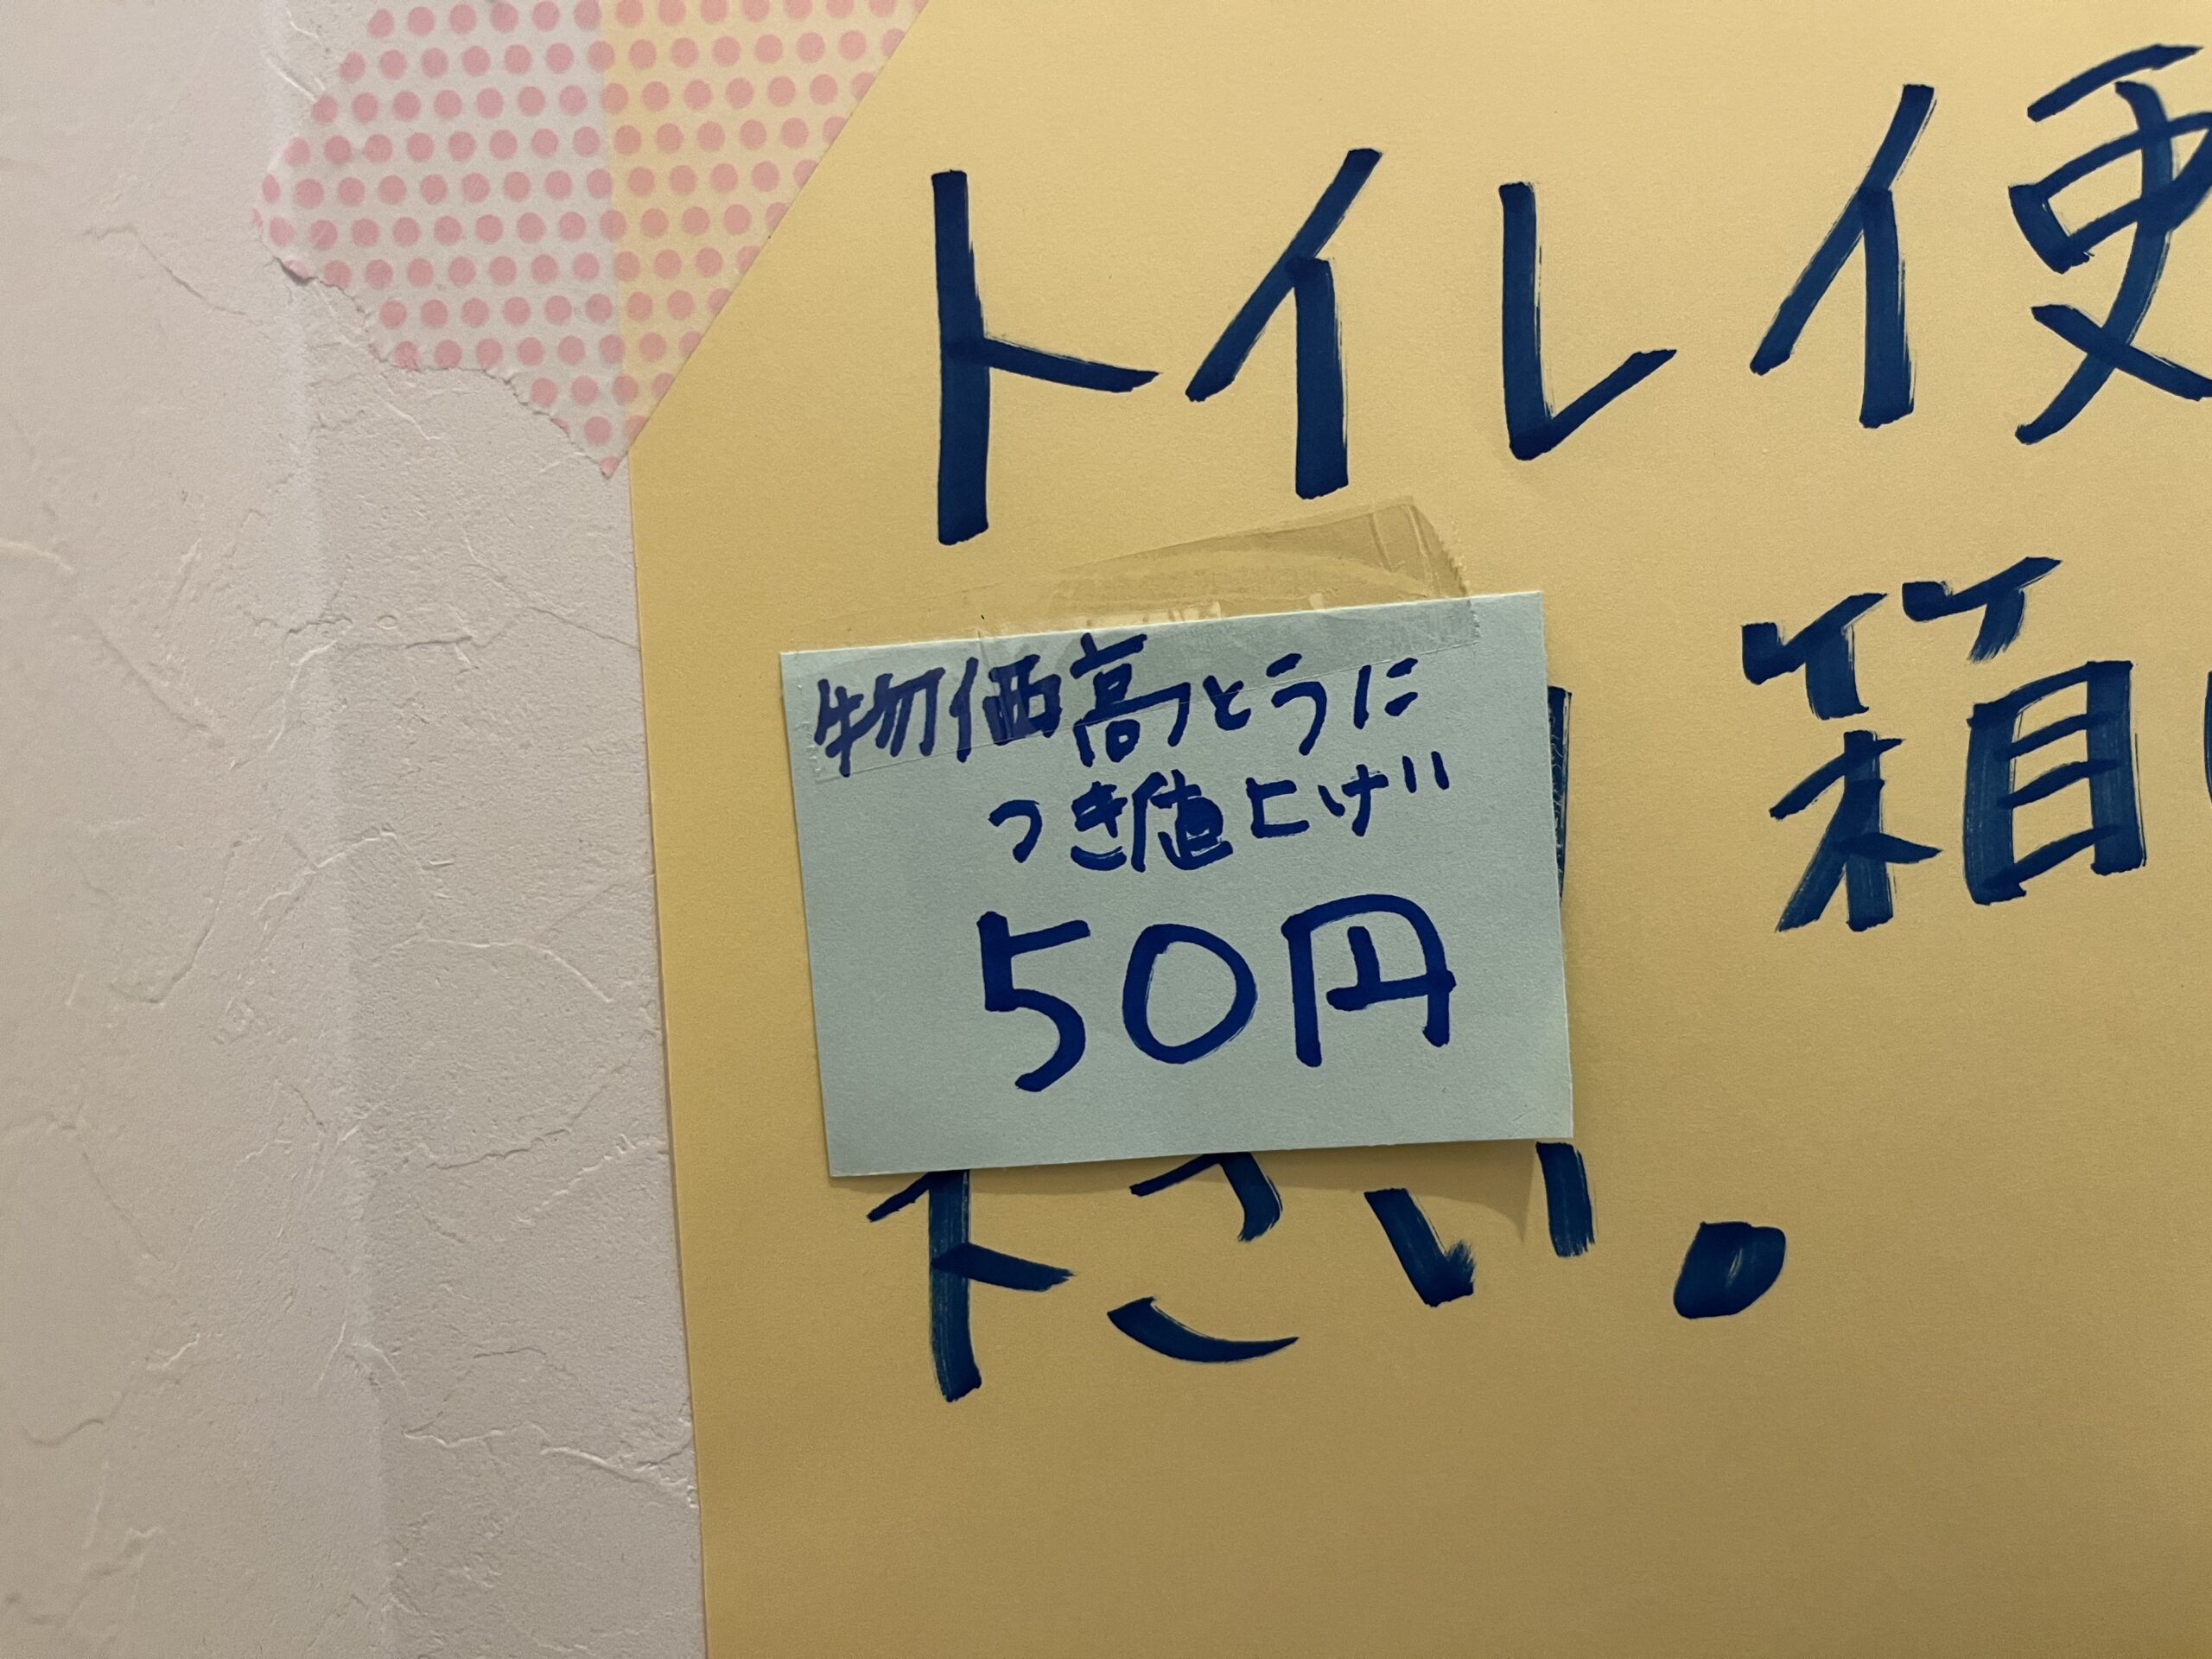 トイレ便
箱
物価高とうに
つき値上げ
50円
下さい。